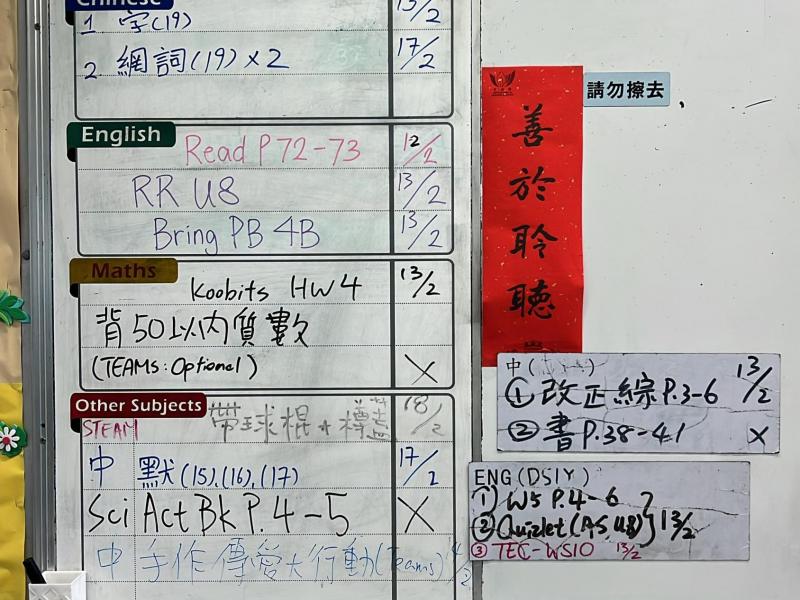 Chinese
1 字(19) 13/2
2. 網詞(19) x 2 17/2
English
Read P 72-73 12/2
RR U8 13/2
Bring PB 4B 13/2
Maths
Koobits HW 4 13/2
背50以內質數
(TEAMS: Optional) X
Other Subjects
STEAM 帶球棍 18/2
中 默(15),(16),(17) 17/2
Sci Act Bk P. 4-5 X
中 手作 傳愛大行動(Teams)
善於聆聽
請勿擦去
中(
① 改正綜P.3-6 13/2
② 書P.38-41 X
ENG (DSIY)
① W5 P.4-6
② Quizlet ( 13/2
③ TEC-WS10 13/2